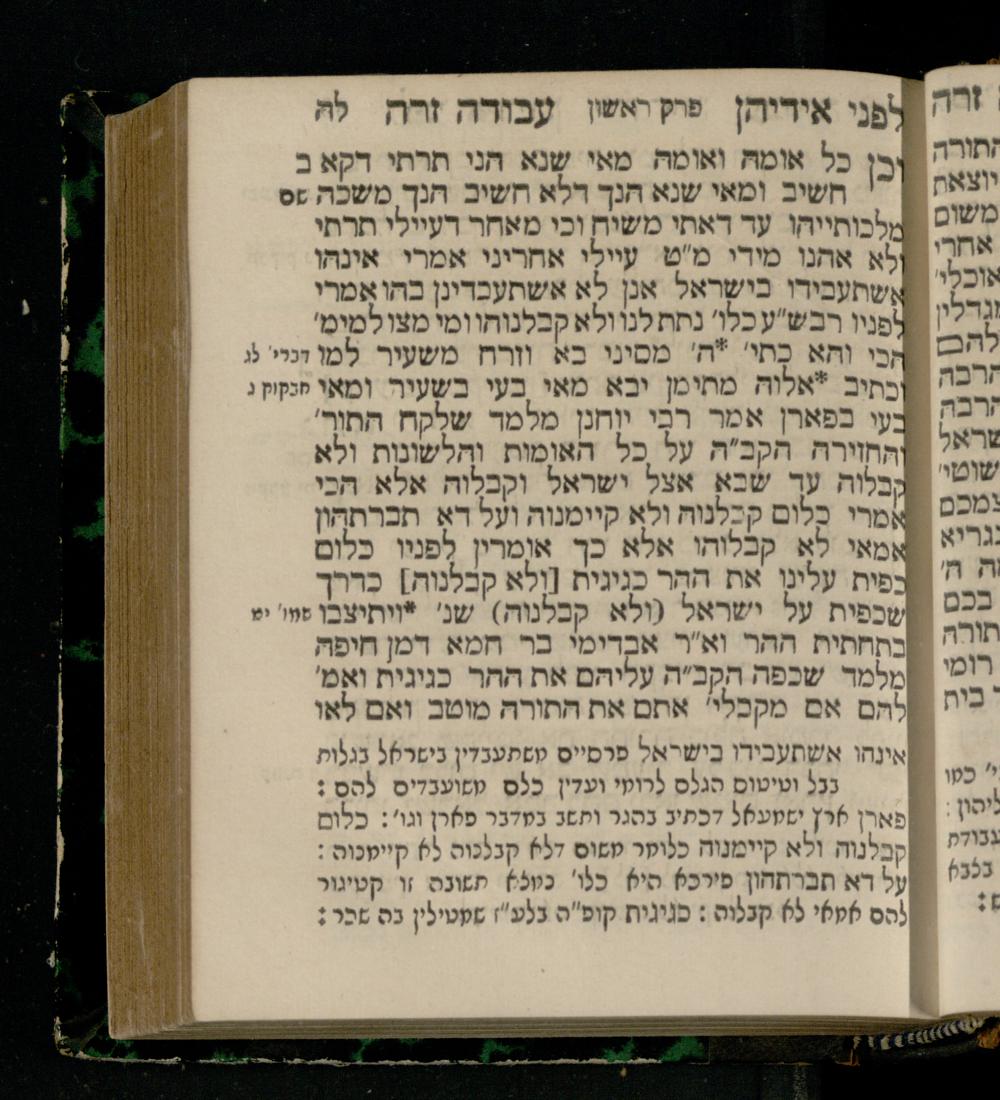 לפני אידיהן פרק ראשון עבודה זרה לה
וכן כל אומה ואומה מאי שנא הני תרתי דקא ב
חשיב ומאי שנא הנך דלא חשיב הנך משכה שם
מלכותייהו עד דאתי משיח וכי מאחר דעיילי תרתי
ולא אהנו מידי מ"ט עיילי אחריני אמרי אינהו
אשתעבידו בישראל אנן לא אשתעבדינן בהו אמרי
לפניו רבש"ע כלו' נתת לנו ולא קבלנוהו ומי מצו למימ'
הכי והא כתי' *ה' מסיני בא וזרח משעיר למו דברי' לג
וכתיב *אלוה מתימן יבא מאי בעי בשעיר ומאי חבקוק ג
בעי בפארן אמר רבי יוחנן מלמד שלקח התור'
והחזירה הקב"ה על כל האומות והלשונות ולא
קבלוה עד שבא אצל ישראל וקבלוה אלא הכי
אמרי כלום קבלנוה ולא קיימנוה ועל דא תברתהון
אמאי לא קבלוהו אלא כך אומרין לפניו כלום
כפית עלינו את ההר כגיגית [ולא קבלנוה] כדרך
שכפית על ישראל (ולא קבלנוה) שנ' *ויתיצבו שמו' יט
בתחתית ההר וא"ר אבדימי בר חמא דמן חיפה
מלמד שכפה הקב"ה עליהם את ההר כגיגית ואמ'
להם אם מקבלי' אתם את התורה מוטב ואם לאו
אינהו אשתעבידו בישראל פרסיים משתעבדין בישראל בגלות
בבל וטיטוס הגלם לרומי ועדין כלם משועבדים להם :
פארן ארץ ישמעאל דכתיב בהגר ותשב במדבר פארן וגו' : כלום
קבלנוה ולא קיימנוה כלומר משום דלא קבלנוה לא קיימנוה :
על דא תברתהון פירכא היא כלו' נמצא תשובה זו קטיגור
להם אמאי לא קבלוה : כגיגית קופ"ה בלע"ז שמטילין בה שכר :
זרה
התורה
יוצאת
משום
אחרי
אוכלי'
מגדלין
להם
הרבה
הרבה
ישראל
שוטי'
צמכם
נגריא
מה ה'
בכם
תורה
רומי
בית
י' כמו
ליהון :
עבודת
בלבא